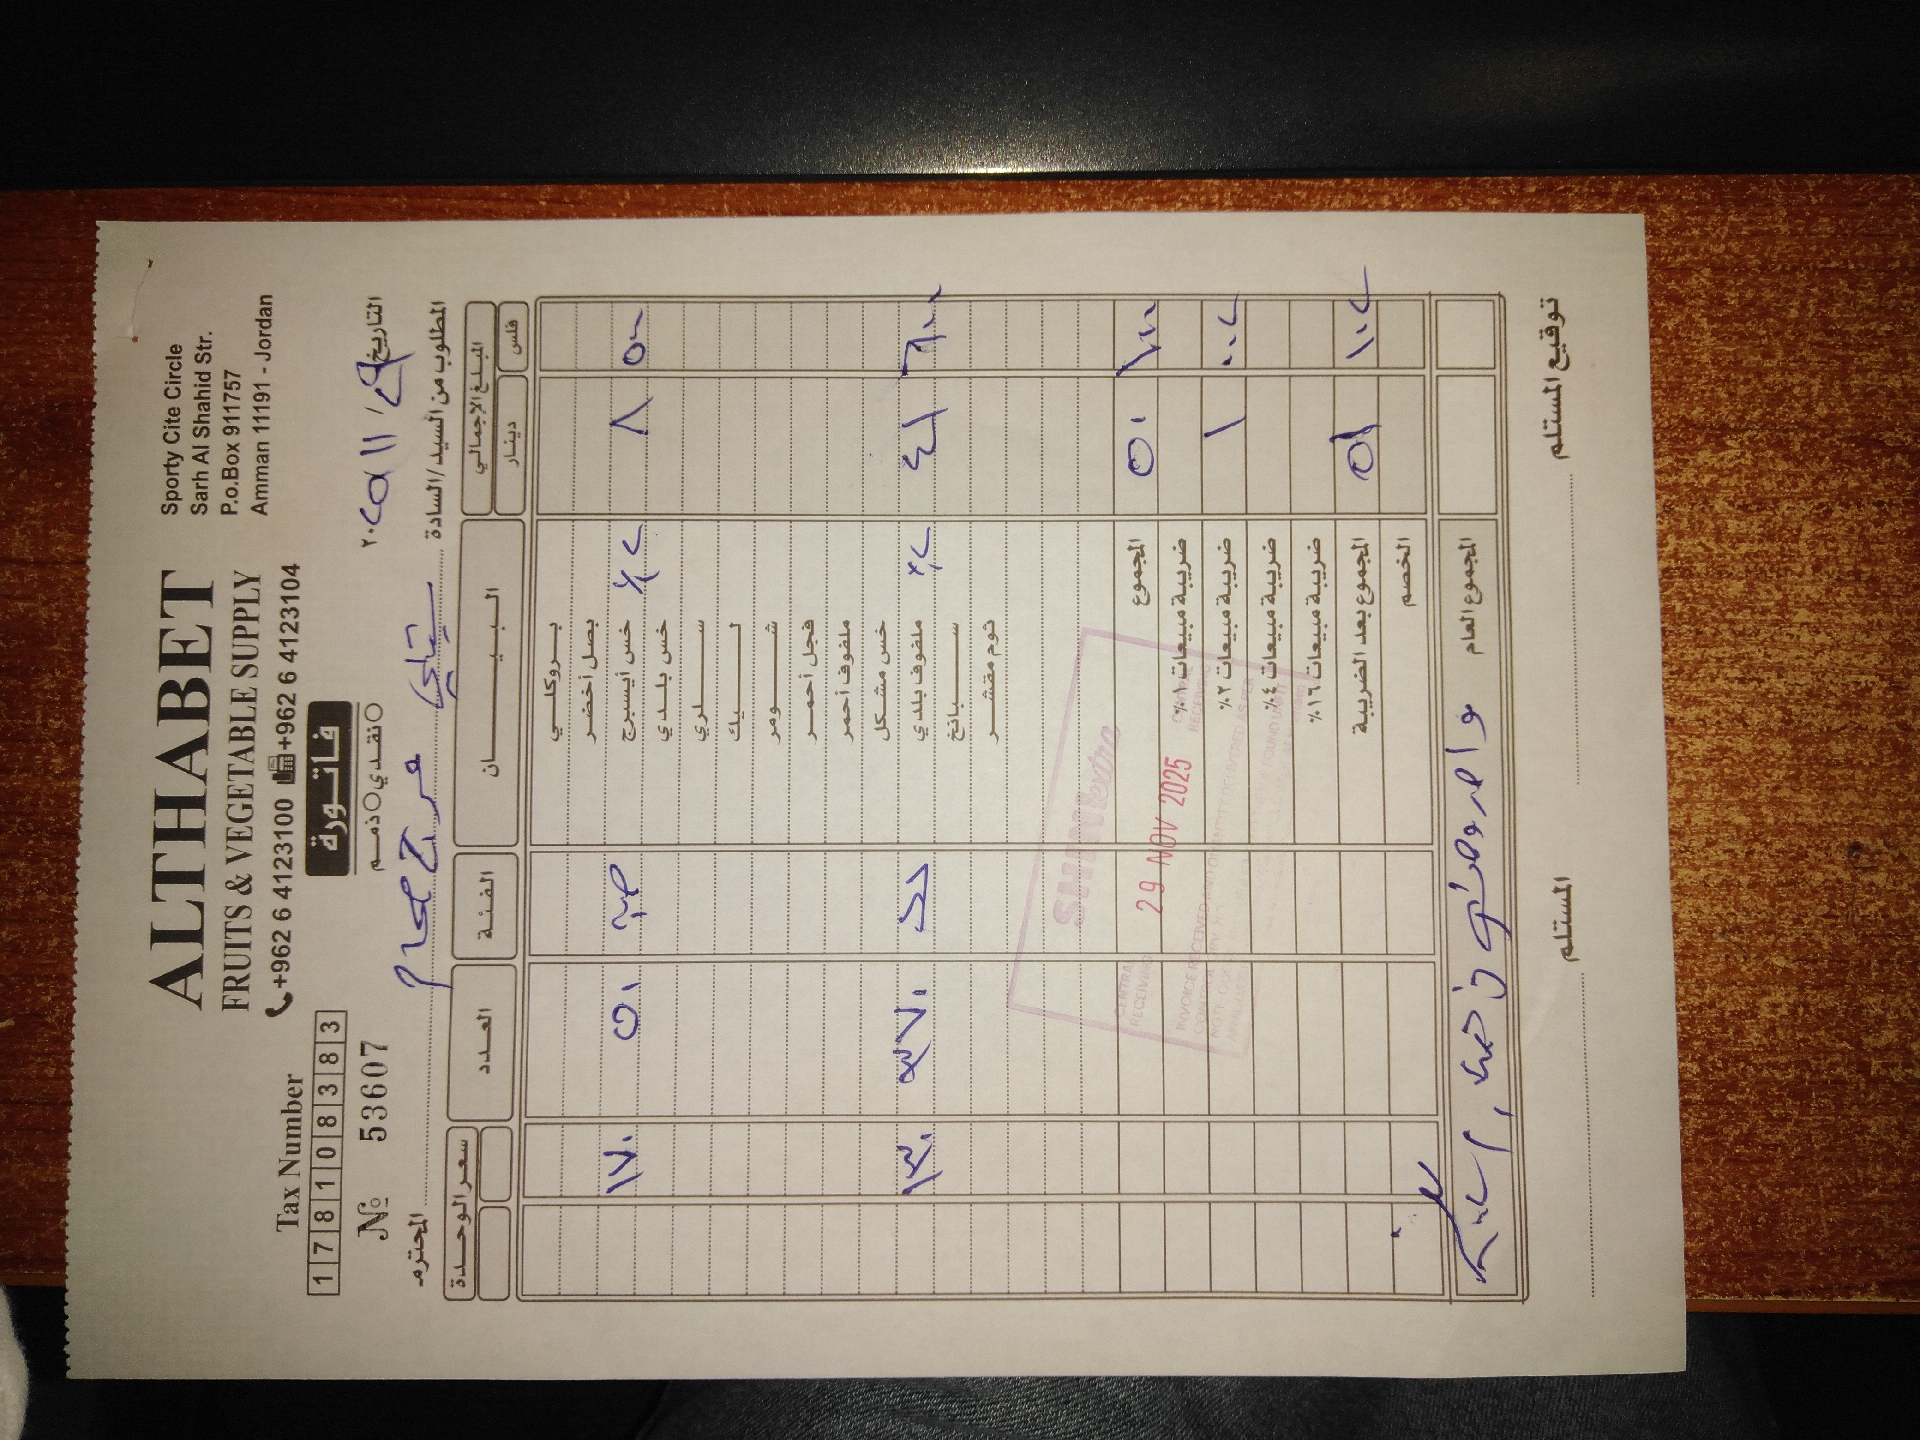 ALTHABET
FRUITS & VEGETABLE SUPPLY
+962 6 4123100 +962 6 4123104
Sporty Cite Circle
Sarh Al Shahid Str.
P.o.Box 911757
Amman 11191 - Jordan
Tax Number
1 7 8 1 0 8 3 8 3
№ 53607
فاتورة
نقدي ذمم
التاريخ ٢٩ / ١١ / ٢٠٢٥
المطلوب من السيد/السادة
المحترم
المبلغ الإجمالي
فلس دينار
البيــــان
الفئة
العدد
سعر الوحدة
بروكلي
بصل أخضر
٥٠٠ ٨ ٪٢ خس أيسبرج ٥٠ ١٧٠
خس بلدي
سلري
ليك
شومر
فجل أحمر
ملفوف أحمر
خس مشكل
٦٠٠ ٤١ ٪٢ ملفوف بلدي ٣٢٠ ١٣٠
سبانخ
ثوم مقشر
SAMEH extra
CENTRAL RECEIVING
29 NOV 2025
INVOICE RECEIVED AND QUANTITY DELIVERED AS PER
المجموع ١٠٠ ٥٠
ضريبة مبيعات ١٪
ضريبة مبيعات ٢٪ ٠٠٢ ١
ضريبة مبيعات ٤٪
ضريبة مبيعات ١٦٪
المجموع بعد الضريبة ١٠٢ ٥١
الخصم
المجموع العام
المستلم
توقيع المستلم